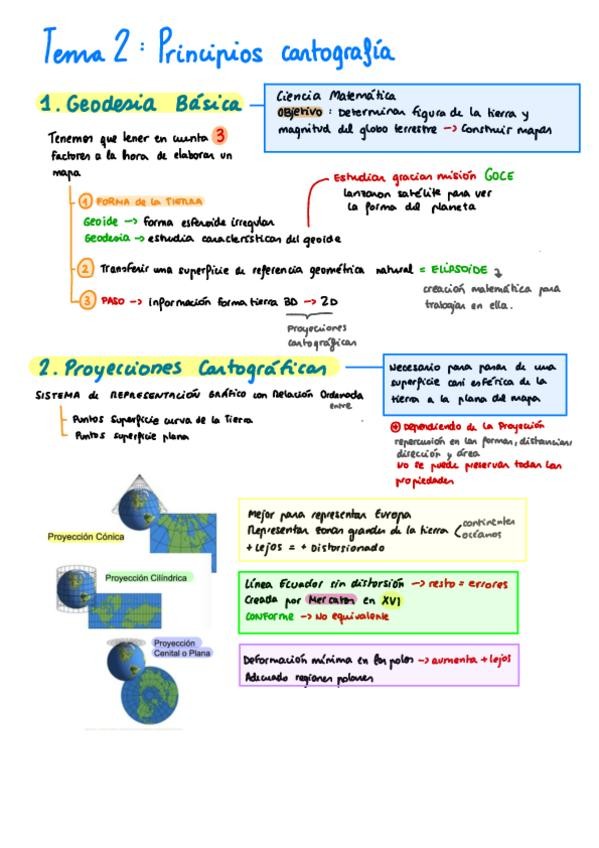 Tema 2: Principios cartografía
1. Geodesia Básica
Ciencia Matemática
Objetivo: Determinar figura de la tierra y
magnitud del globo terrestre → Construir mapas
Tenemos que tener en cuenta 3
factores a la hora de elaborar un
mapa
Estudian gracias misión GOCE
lanzaron satélite para ver
la forma del planeta
1 FORMA de la TIERRA
Geoide → forma esferoide irregular
Geodesia → estudia características del geoide
2 Transferir una superficie de referencia geométrica natural = ELIPSOIDE
creación matemática para
trabajar en ella.
3 PASO → información forma tierra 3D → 2D
Proyecciones
cartográficas
2. Proyecciones Cartográficas
Necesario para pasar de una
superficie casi esférica de la
tierra a la plana del mapa
SISTEMA de REPRESENTACIÓN GRÁFICO con Relación Ordenada
entre
Puntos superficie curva de la Tierra
Puntos superficie plana
⊕ Dependiendo de la Proyección
repercusión en las formas, distancias,
dirección y área
no se puede preservar todas las
propiedades
Proyección Cónica
Mejor para representar Europa
Representar zonas grandes de la tierra
continentes
océanos
+ Lejos = + Distorsionado
Proyección Cilíndrica
Línea Ecuador sin distorsión → resto = errores
Creada por Mercator en XVI
CONFORME → No equivalente
Proyección
Cenital o Plana
Deformación mínima en los polos → aumenta + lejos
Adecuado regiones polares